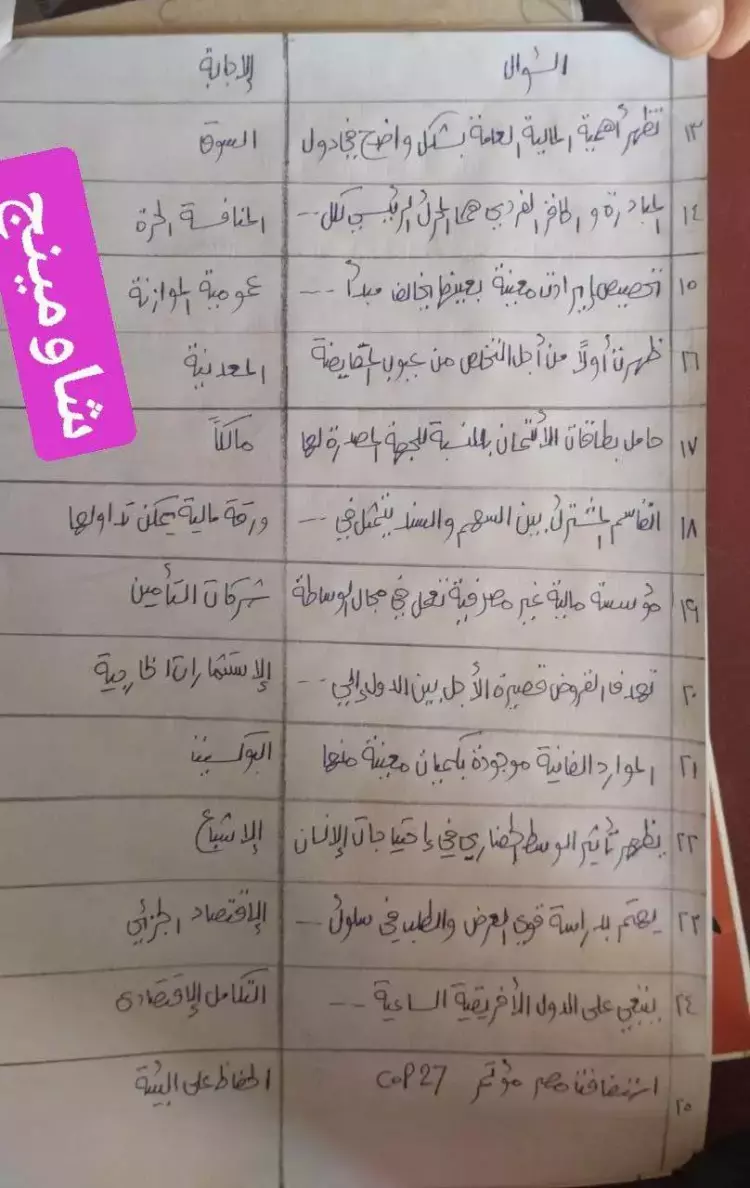 السؤال الإجابة
١٣ تظهر أهمية المالية العامة بشكل واضح في دول السوق
١٤ المبادرة و الحافز الفردي هما المحرك الرئيسي لكل --- المنافسة الحرة
١٥ تخصيص إيرادات معينة بعينها يخالف مبدأ --- عمومية الموازنة
١٦ ظهرت أولاً من أجل التخلص من عيوب المقايضة المعدنية
١٧ حامل بطاقات الائتمان بالنسبة للجهة المصدرة لها مالكاً
١٨ القاسم المشترك بين السهم والسند يتمثل في --- ورقة مالية يمكن تداولها
١٩ مؤسسة مالية غير مصرفية تعمل في مجال الوساطة شركات التأمين
٢٠ تهدف القروض قصيرة الأجل بين الدول إلي --- الإستثمارات الخارجية
٢١ الموارد الفانية موجودة بأحيان معينة منها البوكسيت
٢٢ يظهر تأثير الوسط الحضاري في إحتياجات الإنسان الإشباع
٢٣ يهتم بدراسة قوي العرض والطلب في سلوك --- الإقتصاد الجزئي
٢٤ ينبغي على الدول الأفريقية الساعية --- التكامل الإقتصادى
٢٥ استضافت مصر مؤتمر COP27 الحفاظ على البيئة
شاومينج